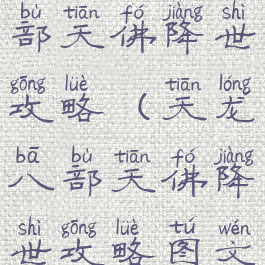 bù tiān fó jiàng shì
部天佛降世
gōng lüè tiān lóng
攻略（天龙
bā bù tiān fó jiàng
八部天佛降
shì gōng lüè tú wén
世攻略图文